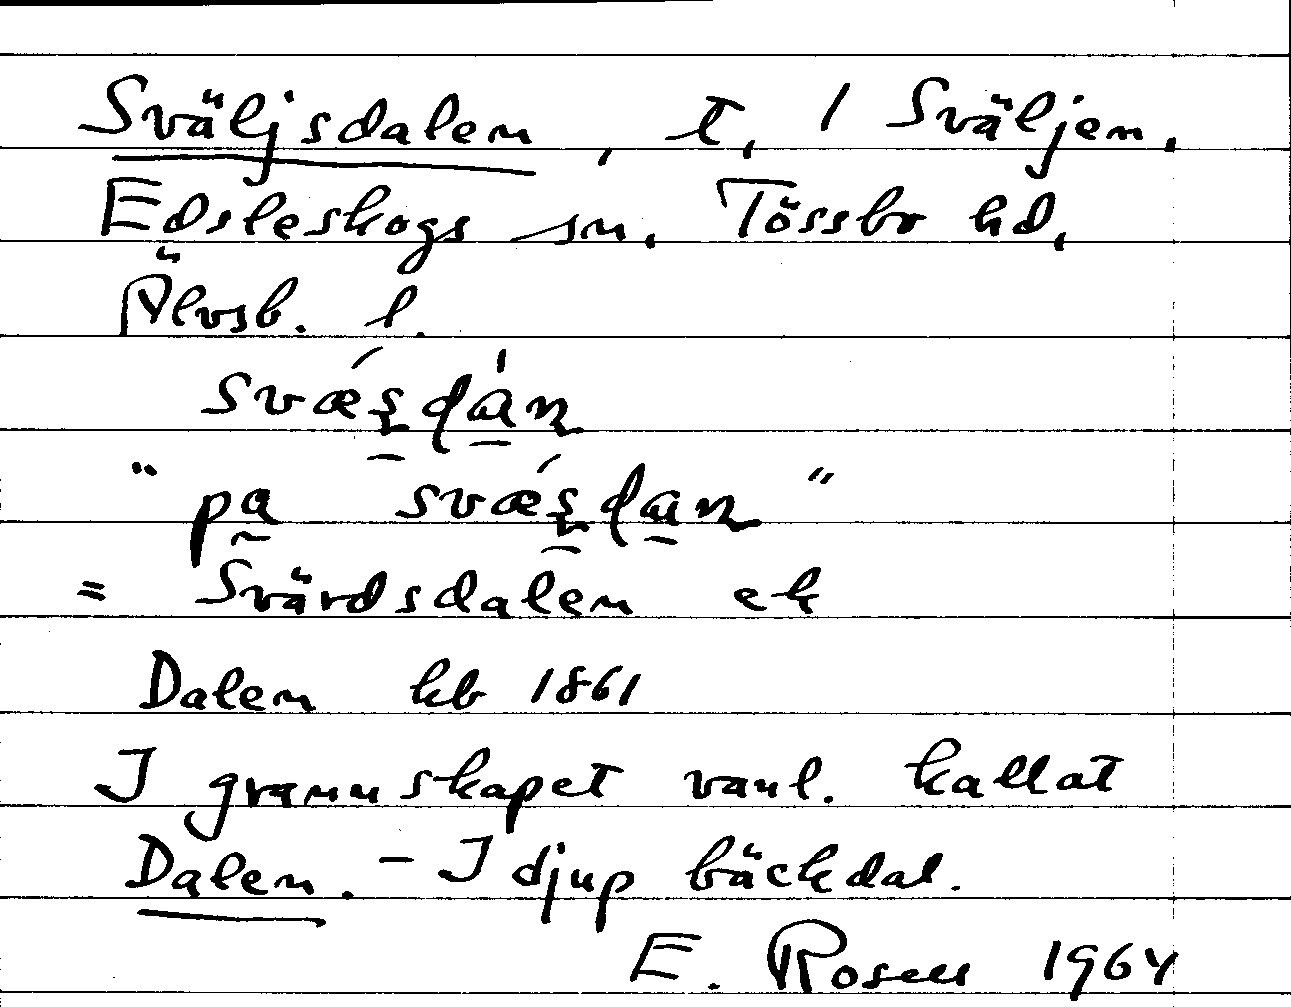 Sväljsdalen, t, / Sväljen.
Edsleskogs sn. Tössbo hd.
Älvsb. l.
svǽʂdán
"pa svǽʂdan"
= Svärdsdalen ek
Dalen kb 1861
I grannskapet vanl. kallat
Dalen. – I djup bäckdal.
E. Rosell 1964